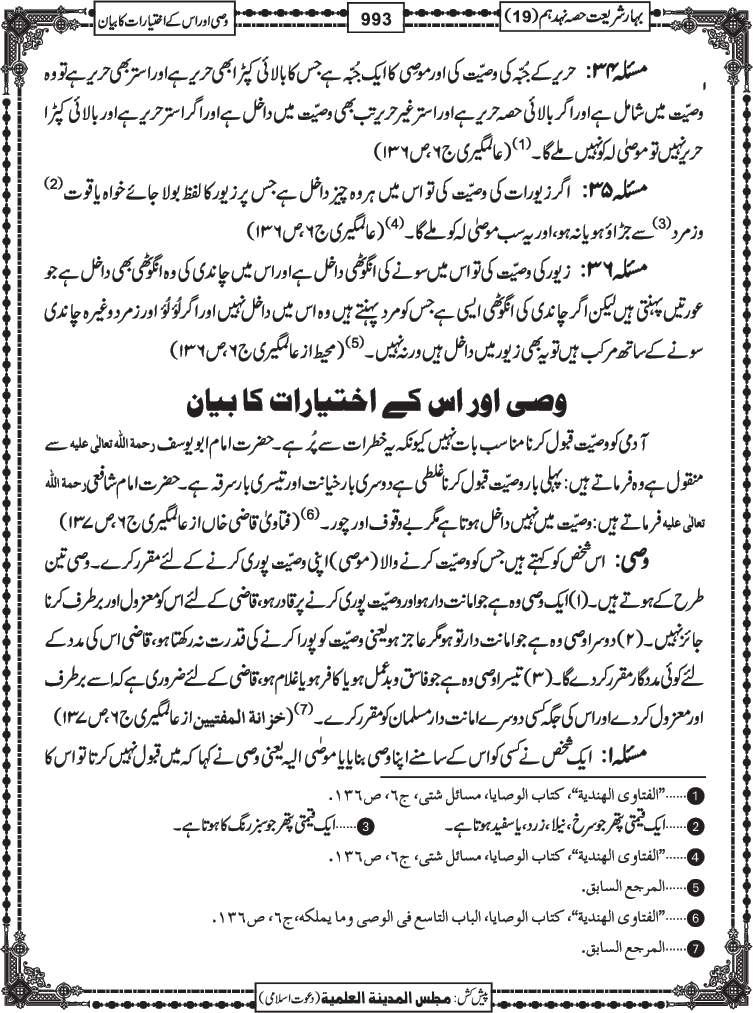 بہارِ شریعت حصہ نوزدہم (19)
993
وصی اور اس کے اختیارات کا بیان
مسئلہ ۳۴: حریر کے جُبّہ کی وصیّت کی اور موصی کا ایک جُبّہ ہے جس کا بالائی کپڑا بھی حریر ہے اور استر بھی حریر ہے تو وہ
وصیّت میں شامل ہے اور اگر بالائی حصہ حریر ہے اور استر غیر حریر تب بھی وصیّت میں داخل ہے اور اگر استر حریر ہے اور بالائی کپڑا
حریر نہیں تو موصیٰ لہ کو نہیں ملے گا۔(1) (عالمگیری ج۶، ص۱۳۶)
مسئلہ ۳۵: اگر زیورات کی وصیّت کی تو اس میں ہر وہ چیز داخل ہے جس پر زیور کا لفظ بولا جائے خواہ یاقوت(2)
وزمرد(3) سے جڑاؤ ہو یا نہ ہو، اور یہ سب موصیٰ لہ کو ملے گا۔(4) (عالمگیری ج۶، ص۱۳۶)
مسئلہ ۳۶: زیور کی وصیّت کی تو اس میں سونے کی انگوٹھی داخل ہے اور اس میں چاندی کی وہ انگوٹھی بھی داخل ہے جو
عورتیں پہنتی ہیں لیکن اگر چاندی کی انگوٹھی ایسی ہے جس کو مرد پہنتے ہیں وہ اس میں داخل نہیں اور اگر لُؤلُؤ اور زمرد وغیرہ چاندی
سونے کے ساتھ مرکب ہیں تو یہ بھی زیور میں داخل ہیں ورنہ نہیں۔(5) (محیط از عالمگیری ج۶، ص۱۳۶)
وصی اور اس کے اختیارات کا بیان
آدمی کو وصیّت قبول کرنا مناسب بات نہیں کیونکہ یہ خطرات سے پُر ہے۔ حضرت امام ابو یوسف رحمۃ اللہ تعالیٰ علیہ سے
منقول ہے وہ فرماتے ہیں: پہلی بار وصیّت قبول کرنا غلطی ہے دوسری بار خیانت اور تیسری بار سرقہ ہے۔ حضرت امام شافعی رحمۃ اللہ
تعالیٰ علیہ فرماتے ہیں: وصیّت میں نہیں داخل ہوتا ہے مگر بے وقوف اور چور۔(6) (فتاویٰ قاضی خاں از عالمگیری ج۶، ص۱۳۷)
وصی: اس شخص کو کہتے ہیں جس کو وصیّت کرنے والا (موصی) اپنی وصیّت پوری کرنے کے لئے مقرر کرے۔ وصی تین
طرح کے ہوتے ہیں۔ (۱) ایک وصی وہ ہے جو امانت دار ہو اور وصیّت پوری کرنے پر قادر ہو، قاضی کے لئے اس کو معزول اور برطرف کرنا
جائز نہیں۔ (۲) دوسرا وصی وہ ہے جو امانت دار تو ہو مگر عاجز ہو یعنی وصیّت کو پورا کرنے کی قدرت نہ رکھتا ہو، قاضی اس کی مدد کے
لئے کوئی مددگار مقرر کر دے گا۔ (۳) تیسرا وصی وہ ہے جو فاسق و بد عمل ہو یا کافر ہو یا غلام ہو، قاضی کے لئے ضروری ہے کہ اسے برطرف
اور معزول کر دے اور اس کی جگہ کسی دوسرے امانت دار مسلمان کو مقرر کرے۔(7) (خزانۃ المفتیین از عالمگیری ج۶، ص۱۳۷)
مسئلہ ۱: ایک شخص نے کسی کو اس کے سامنے اپنا وصی بنایا یا موصٰی الیہ یعنی وصی نے کہا کہ میں قبول نہیں کرتا تو اس کا
1......"الفتاوی الھندیة"، کتاب الوصایا، مسائل شتی، ج۶، ص۱۳۶.
2......ایک قیمتی پتھر جو سرخ، نیلا، زرد، یا سفید ہوتا ہے۔ 3......ایک قیمتی پتھر جو سبز رنگ کا ہوتا ہے۔
4......"الفتاوی الھندیة"، کتاب الوصایا، مسائل شتی، ج۶، ص۱۳۶.
5......المرجع السابق.
6......"الفتاوی الھندیة"، کتاب الوصایا، الباب التاسع فی الوصی وما یملکه، ج۶، ص۱۳۶.
7......المرجع السابق.
پیش کش: مجلس المدینة العلمیة (دعوت اسلامی)